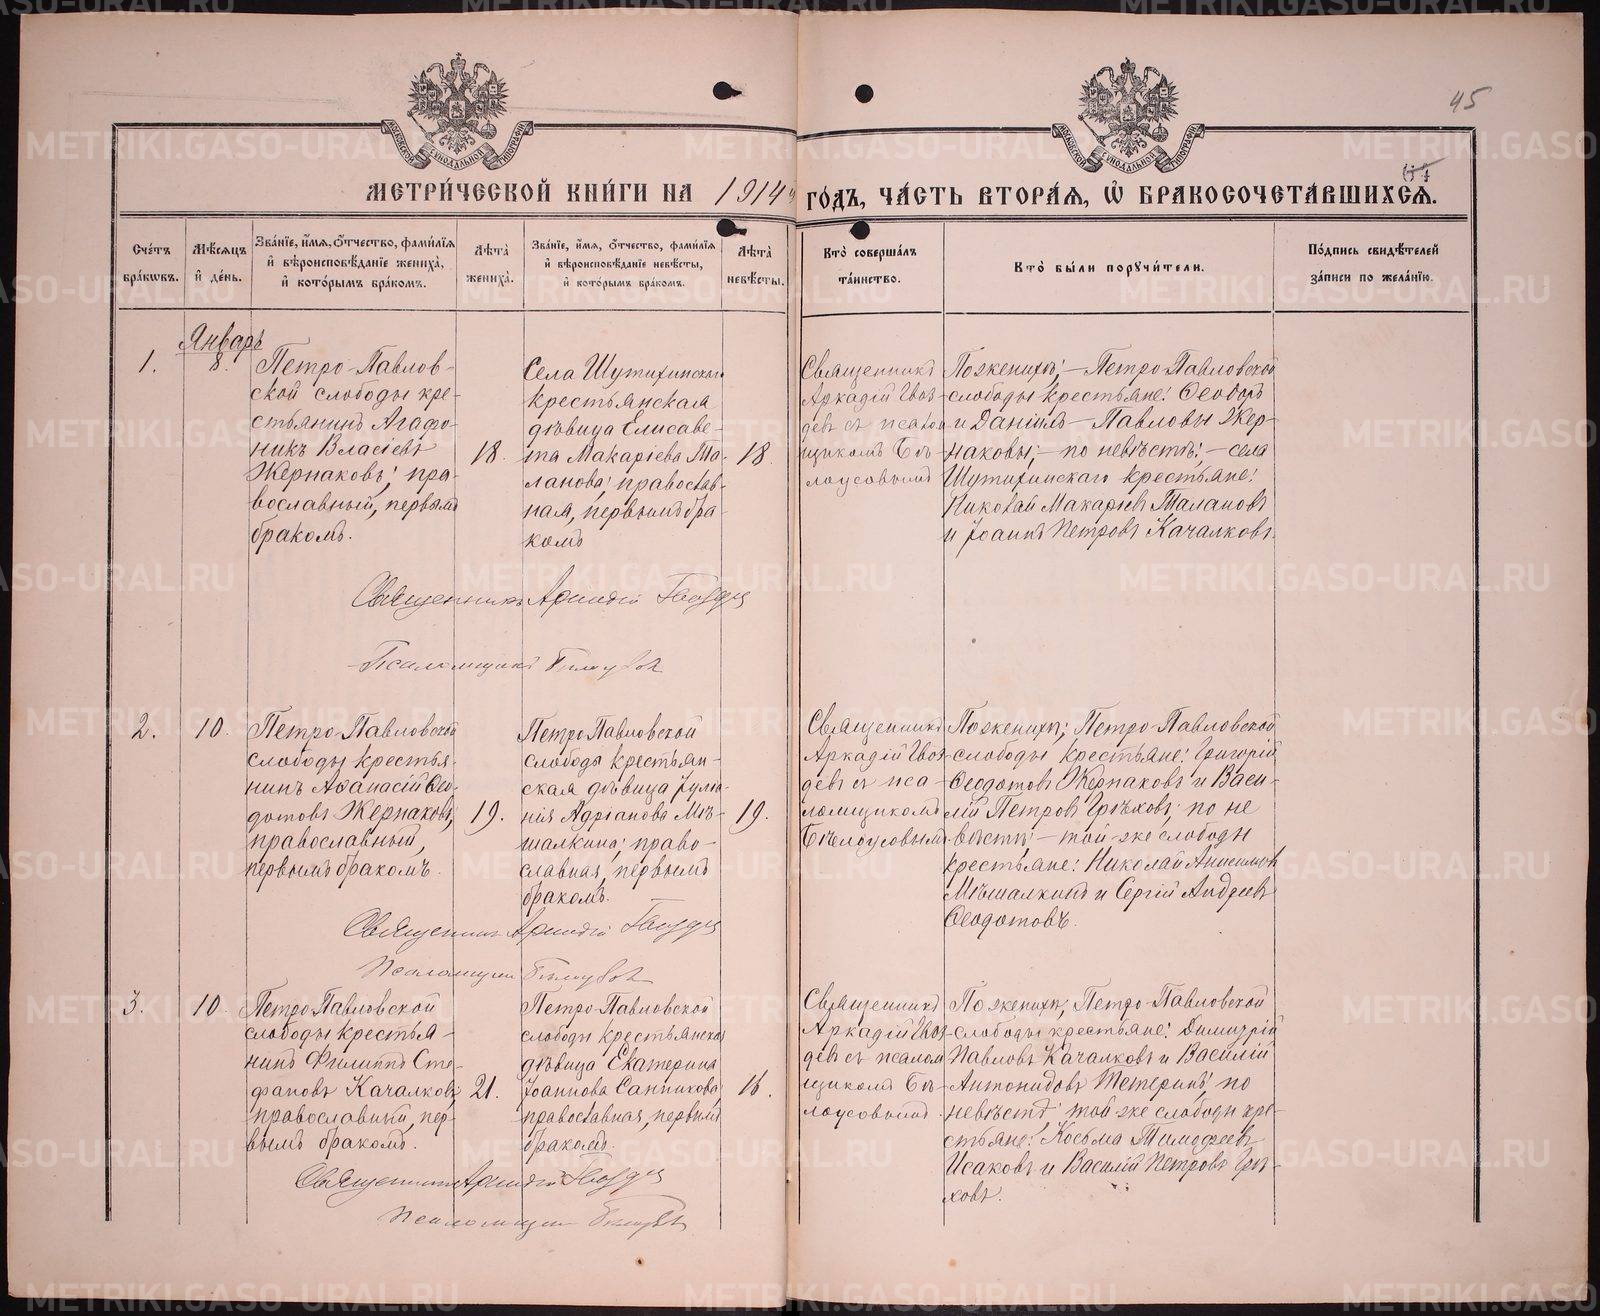 45
МЕТРИ́ЧЕСКОЙ КНИ́ГИ НА 1914 й ГО́ДЪ, ЧА́СТЬ ВТОРА́Я, Ѡ҆ БРАКОСОЧЕТА́ВШИХСѦ.
Сче́тъ бра́кѡвъ.
Мѣ́сѧцъ и҆ де́нь.
Зва́нїе, и҆́мѧ, ѻ҆́тчество, фами́лїѧ и҆ вѣроисповѣ́данїе жениха̀, и҆ кото́рымъ бра́комъ.
Лѣта̀ жениха̀.
Зва́нїе, и҆́мѧ, ѻ҆́тчество, фами́лїѧ и҆ вѣроисповѣ́данїе невѣ́сты, и҆ кото́рымъ бра́комъ.
Лѣта̀ невѣ́сты.
Кто̀ соверша́лъ та́инство.
Кто̀ бы́ли порꙋчи́тели.
По́дпись свидѣ́телей за́писи по жела́нїю.
Январь
1.
8.
Петро-Павлов-
ской слободы кре-
стьянинъ Агафо-
никъ Власіевъ
Жернаковъ; пра-
вославный, первымъ
бракомъ.
18.
Села Шутихинскаго
крестьянская
дѣвица Елисаве-
та Макаріева Та-
ланова; православ-
ная, первымъ бра-
комъ
18.
Священникъ
Аркадій Гвоз-
девъ съ псалом
щикомъ Бѣ-
лоусовымъ
По женихѣ; — Петро-Павловской
слободы крестьяне: Ѳеодоръ
и Даніилъ — Павловы Жер-
наковы; — по невѣстѣ: — села
Шутихинскаго крестьяне:
Николай Макаріевъ Талановъ
и Іоаннъ Петровъ Качалковъ.
Священникъ Аркадій Гвоздевъ
Псаломщикъ Бѣлоусовъ
2.
10.
Петро-Павловской
слободы крестья-
нинъ Аѳанасій Ѳео-
дотовъ Жернаковъ;
православный,
первымъ бракомъ.
19.
Петро-Павловской
слободы крестьян-
ская дѣвица Іула-
нія Адріанова Мѣ-
шалкина; право-
славная, первымъ
бракомъ.
19.
Священникъ
Аркадій Гвоз-
девъ съ пса-
ломщикомъ
Бѣлоусовымъ
По женихѣ; Петро-Павловской
слободы крестьяне: Григорій
Ѳеодотовъ Жернаковъ и Васи-
лій Петровъ Грѣховъ; по не
вѣстѣ; — той-же слободы
крестьяне: Николай Анисимовъ
Мѣшалкинъ и Сергій Андреевъ
Ѳеодотовъ.
Священникъ Аркадій Гвоздевъ
Псаломщикъ Бѣлоусовъ
3.
10.
Петро-Павловской
слободы крестья-
нинъ Филиппъ Сте-
фановъ Качалковъ;
православный, пер-
вымъ бракомъ.
21.
Петро-Павловской
слободы крестьянская
дѣвица Екатерина
Іоаннова Санникова;
православная, первымъ
бракомъ.
16.
Священникъ
Аркадій Гвоз-
девъ съ псалом
щикомъ Бѣ-
лоусовымъ.
По женихѣ; Петро-Павловской
слободы крестьяне: Димитрій
Павловъ Качалковъ и Василій
Антонидовъ Тетеринъ; по
невѣстѣ той-же слободы кре-
стьяне: Косьма Тимофеевъ
Исаковъ и Василій Петровъ Грѣ-
ховъ.
Священникъ Аркадій Гвоздевъ
Псаломщикъ Бѣлоусовъ
METRIKI.GASO-URAL.RU